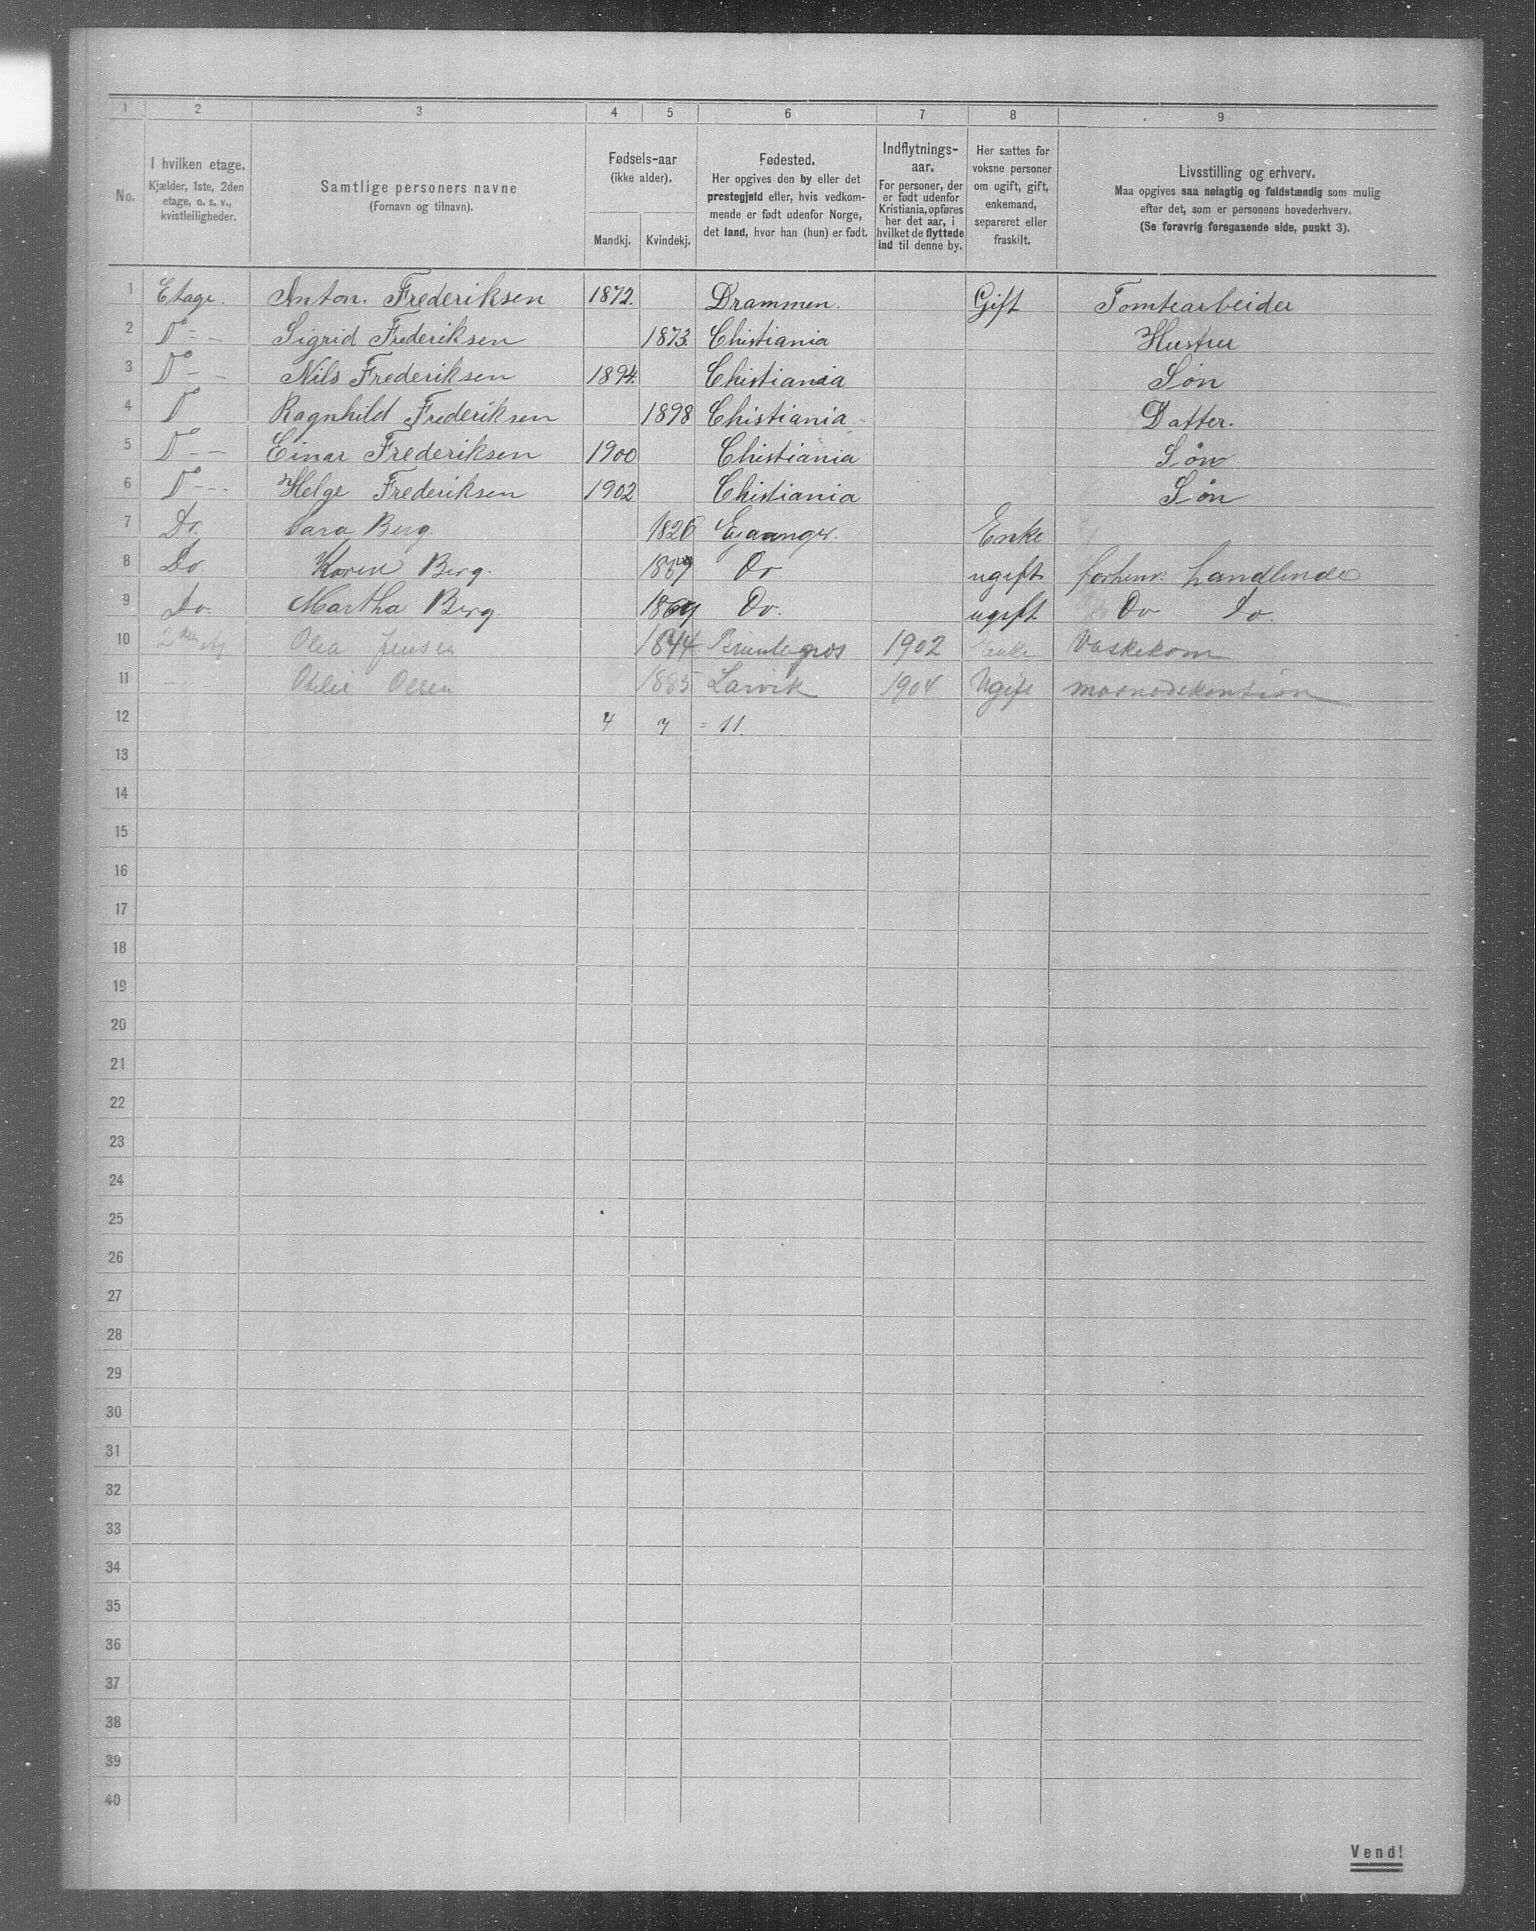 1 2 3 4 5 6 7 8 9
No.
I hvilken etage.
Kjælder, 1ste, 2den
etage, o. s. v.,
kvistleiligheder.
Samtlige personers navne
(Fornavn og tilnavn).
Fødsels-aar
(ikke alder).
Mandkj. Kvindekj.
Fødested.
Her opgives den by eller det
prestegjeld eller, hvis vedkom-
mende er født udenfor Norge,
det land, hvor han (hun) er født.
Indflytnings-
aar.
For personer, der
er født udenfor
Kristiania, opføres
her det aar, i
hvilket de flyttede
ind til denne by.
Her sættes for
voksne personer
om ugift, gift,
enkemand,
separeret eller
fraskilt.
Livsstilling og erhverv.
Maa opgives saa nøiagtig og fuldstændig som mulig
efter det, som er personens hovederhverv.
(Se forøvrig foregaaende side, punkt 3).
1 Etage. Anton. Frederiksen 1872. Drammen. Gift Tomtearbeider
2 Do = - Sigrid Frederiksen 1873. Chistiania Hustru
3 Do - - Nils Frederiksen 1894. Chistiania Søn
4 Do Ragnhild Frederiksen 1898 Chistiania Datter.
5 Do - - Einar Frederiksen 1900 Chistiania Søn
6 Do - - - Helge Frederiksen 1902 Chistiania Søn
7 Do. Sara Berg. 1826 Enke
8 Do. Karen Berg. Do. ugift forhenv. handlende
9 Do. Martha Berg. Do. ugift Do Do.
10 Olea Jensen 1844 1902 Enke Vaskekone
11 Olsen 1885 Larvik 1904 Ugift
12 4 7 = 11.
13
14
15
16
17
18
19
20
21
22
23
24
25
26
27
28
29
30
31
32
33
34
35
36
37
38
39
40
Vend!